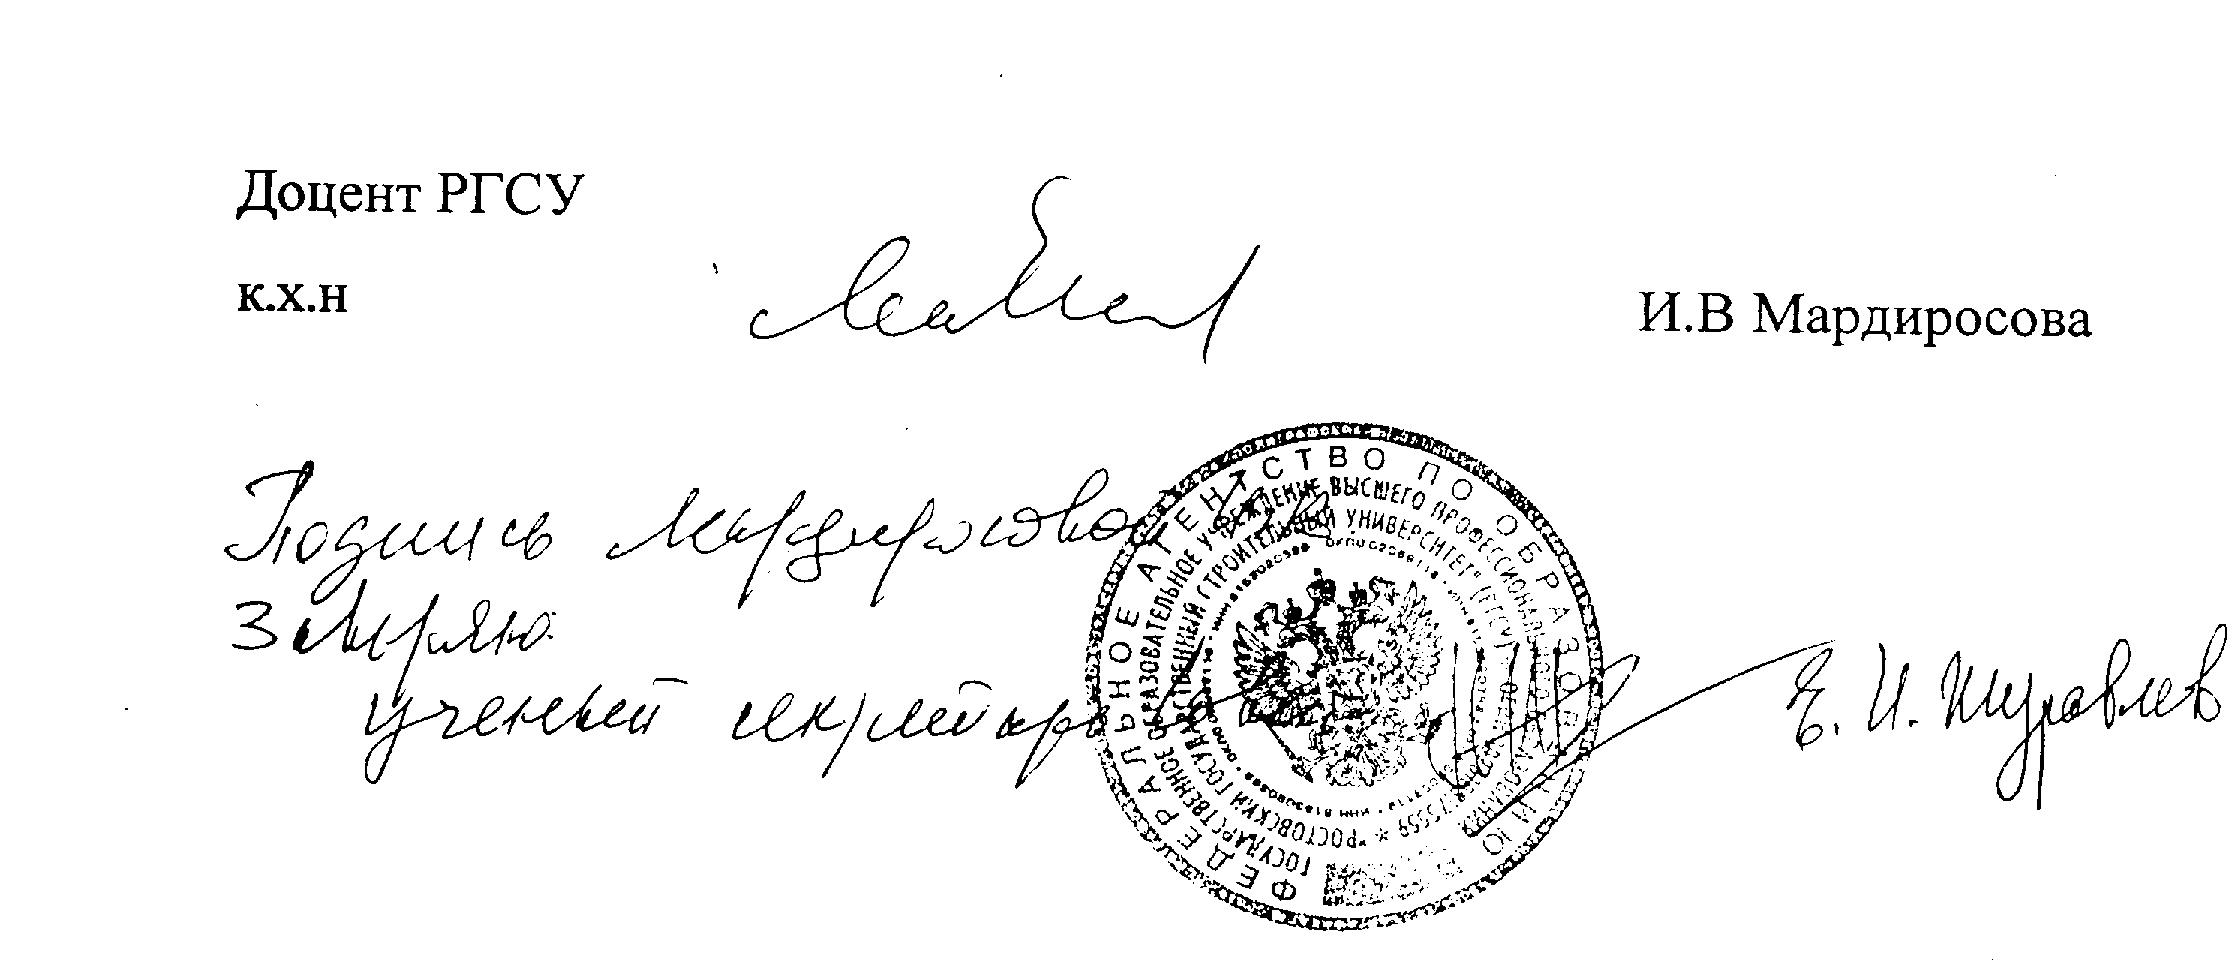 Доцент РГСУ
к.х.н
И.В Мардиросова
Подпись Мардиросовой И.В.
заверяю
ученый секретарь
Е. И. Журавлев
ФЕДЕРАЛЬНОЕ АГЕНТСТВО ПО ОБРАЗОВАНИЮ
ГОСУДАРСТВЕННОЕ ОБРАЗОВАТЕЛЬНОЕ УЧРЕЖДЕНИЕ ВЫСШЕГО ПРОФЕССИОНАЛЬНОГО ОБРАЗОВАНИЯ
"РОСТОВСКИЙ ГОСУДАРСТВЕННЫЙ СТРОИТЕЛЬНЫЙ УНИВЕРСИТЕТ" (РГСУ)